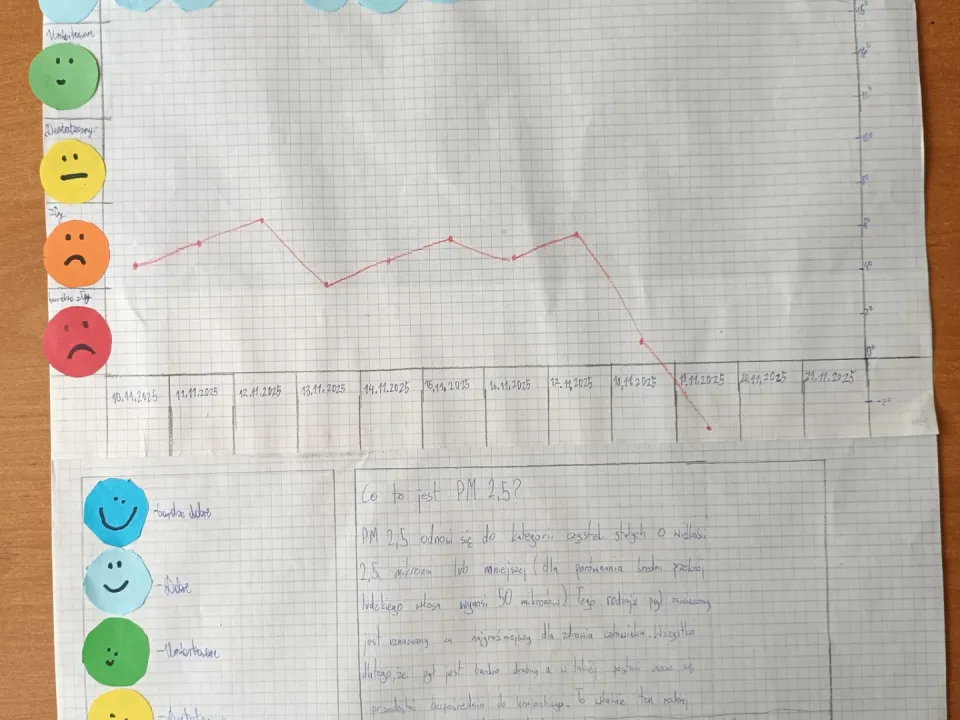 Umiarkowane
Dostateczny
Zły
bardzo zły
16°
14°
12°
10°
8°
6°
4°
2°
0°
-2°
10.11.2025
11.11.2025
12.11.2025
13.11.2025
14.11.2025
15.11.2025
16.11.2025
17.11.2025
18.11.2025
19.11.2025
20.11.2025
21.11.2025
-bardzo dobre
-Dobre
-Umiarkowane
Co to jest PM 2,5?
PM 2,5 odnosi się do kategorii cząstek stałych o wielkości
2,5 mikrona lub mniejszej (dla porównania średni przekrój
ludzkiego włosa wynosi 50 mikronów) Tego rodzaju pył
jest uznawany za najgroźniejszy dla zdrowia człowieka. Wszystko
dlatego, że pył jest bardzo drobny a w takiej postaci może się
przedostać bezpośrednio do krwioobiegu. To właśnie ten rodzaj